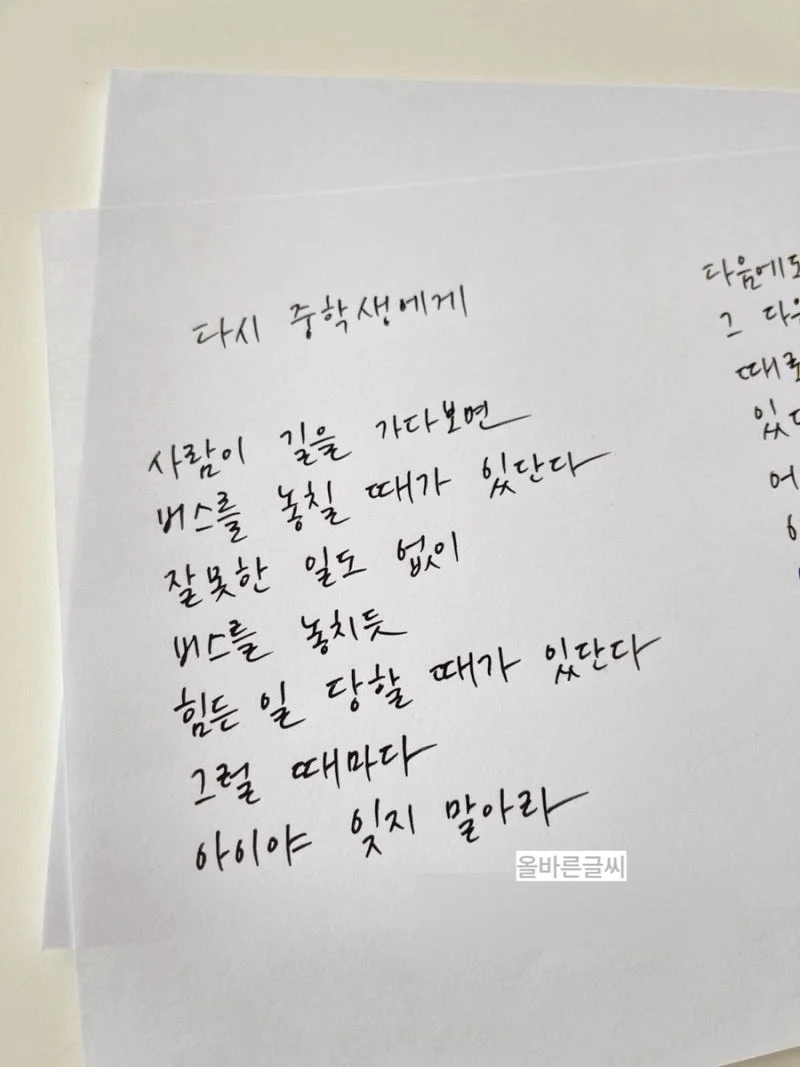 다시 중학생에게
사람이 길을 가다보면
버스를 놓칠 때가 있단다
잘못한 일도 없이
버스를 놓치듯
힘든 일 당할 때가 있단다
그럴 때마다
아이야 잊지 말아라
다음에도
그 다음
때로
있다
어
올바른글씨